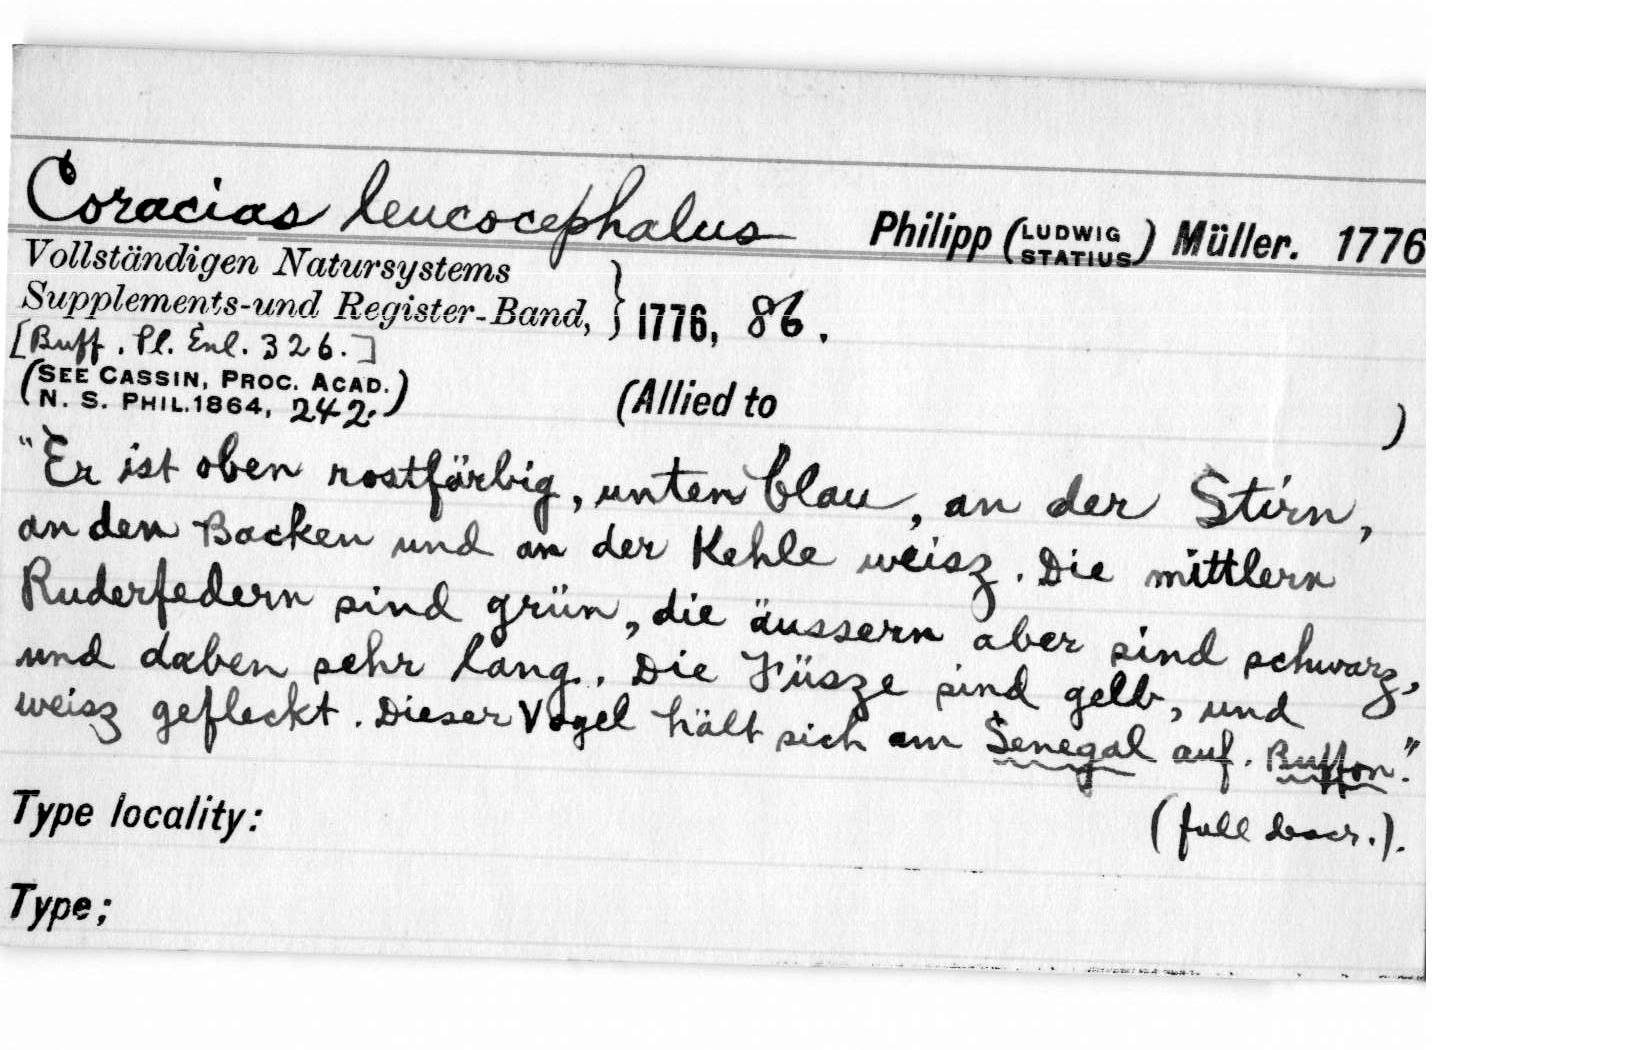 Coracias leucocephalus Philipp (LUDWIG STATIUS) Müller. 1776
Vollständigen Natursystems
Supplements-und Register-Band, } 1776, 86.
[Buff. Pl. Enl. 326.]
(SEE CASSIN, PROC. ACAD.
N. S. PHIL. 1864, 242.) (Allied to )
"Er ist oben rostfärbig, unten blau, an der Stirn,
an den Backen und an der Kehle weisz. Die mittlern
Ruderfedern sind grün, die äussern aber sind schwarz,
und daben sehr lang. Die Füsze sind gelb, und
weisz gefleckt. Dieser Vogel hält sich am Senegal auf. Buffon."
(full descr.).
Type locality:
Type;